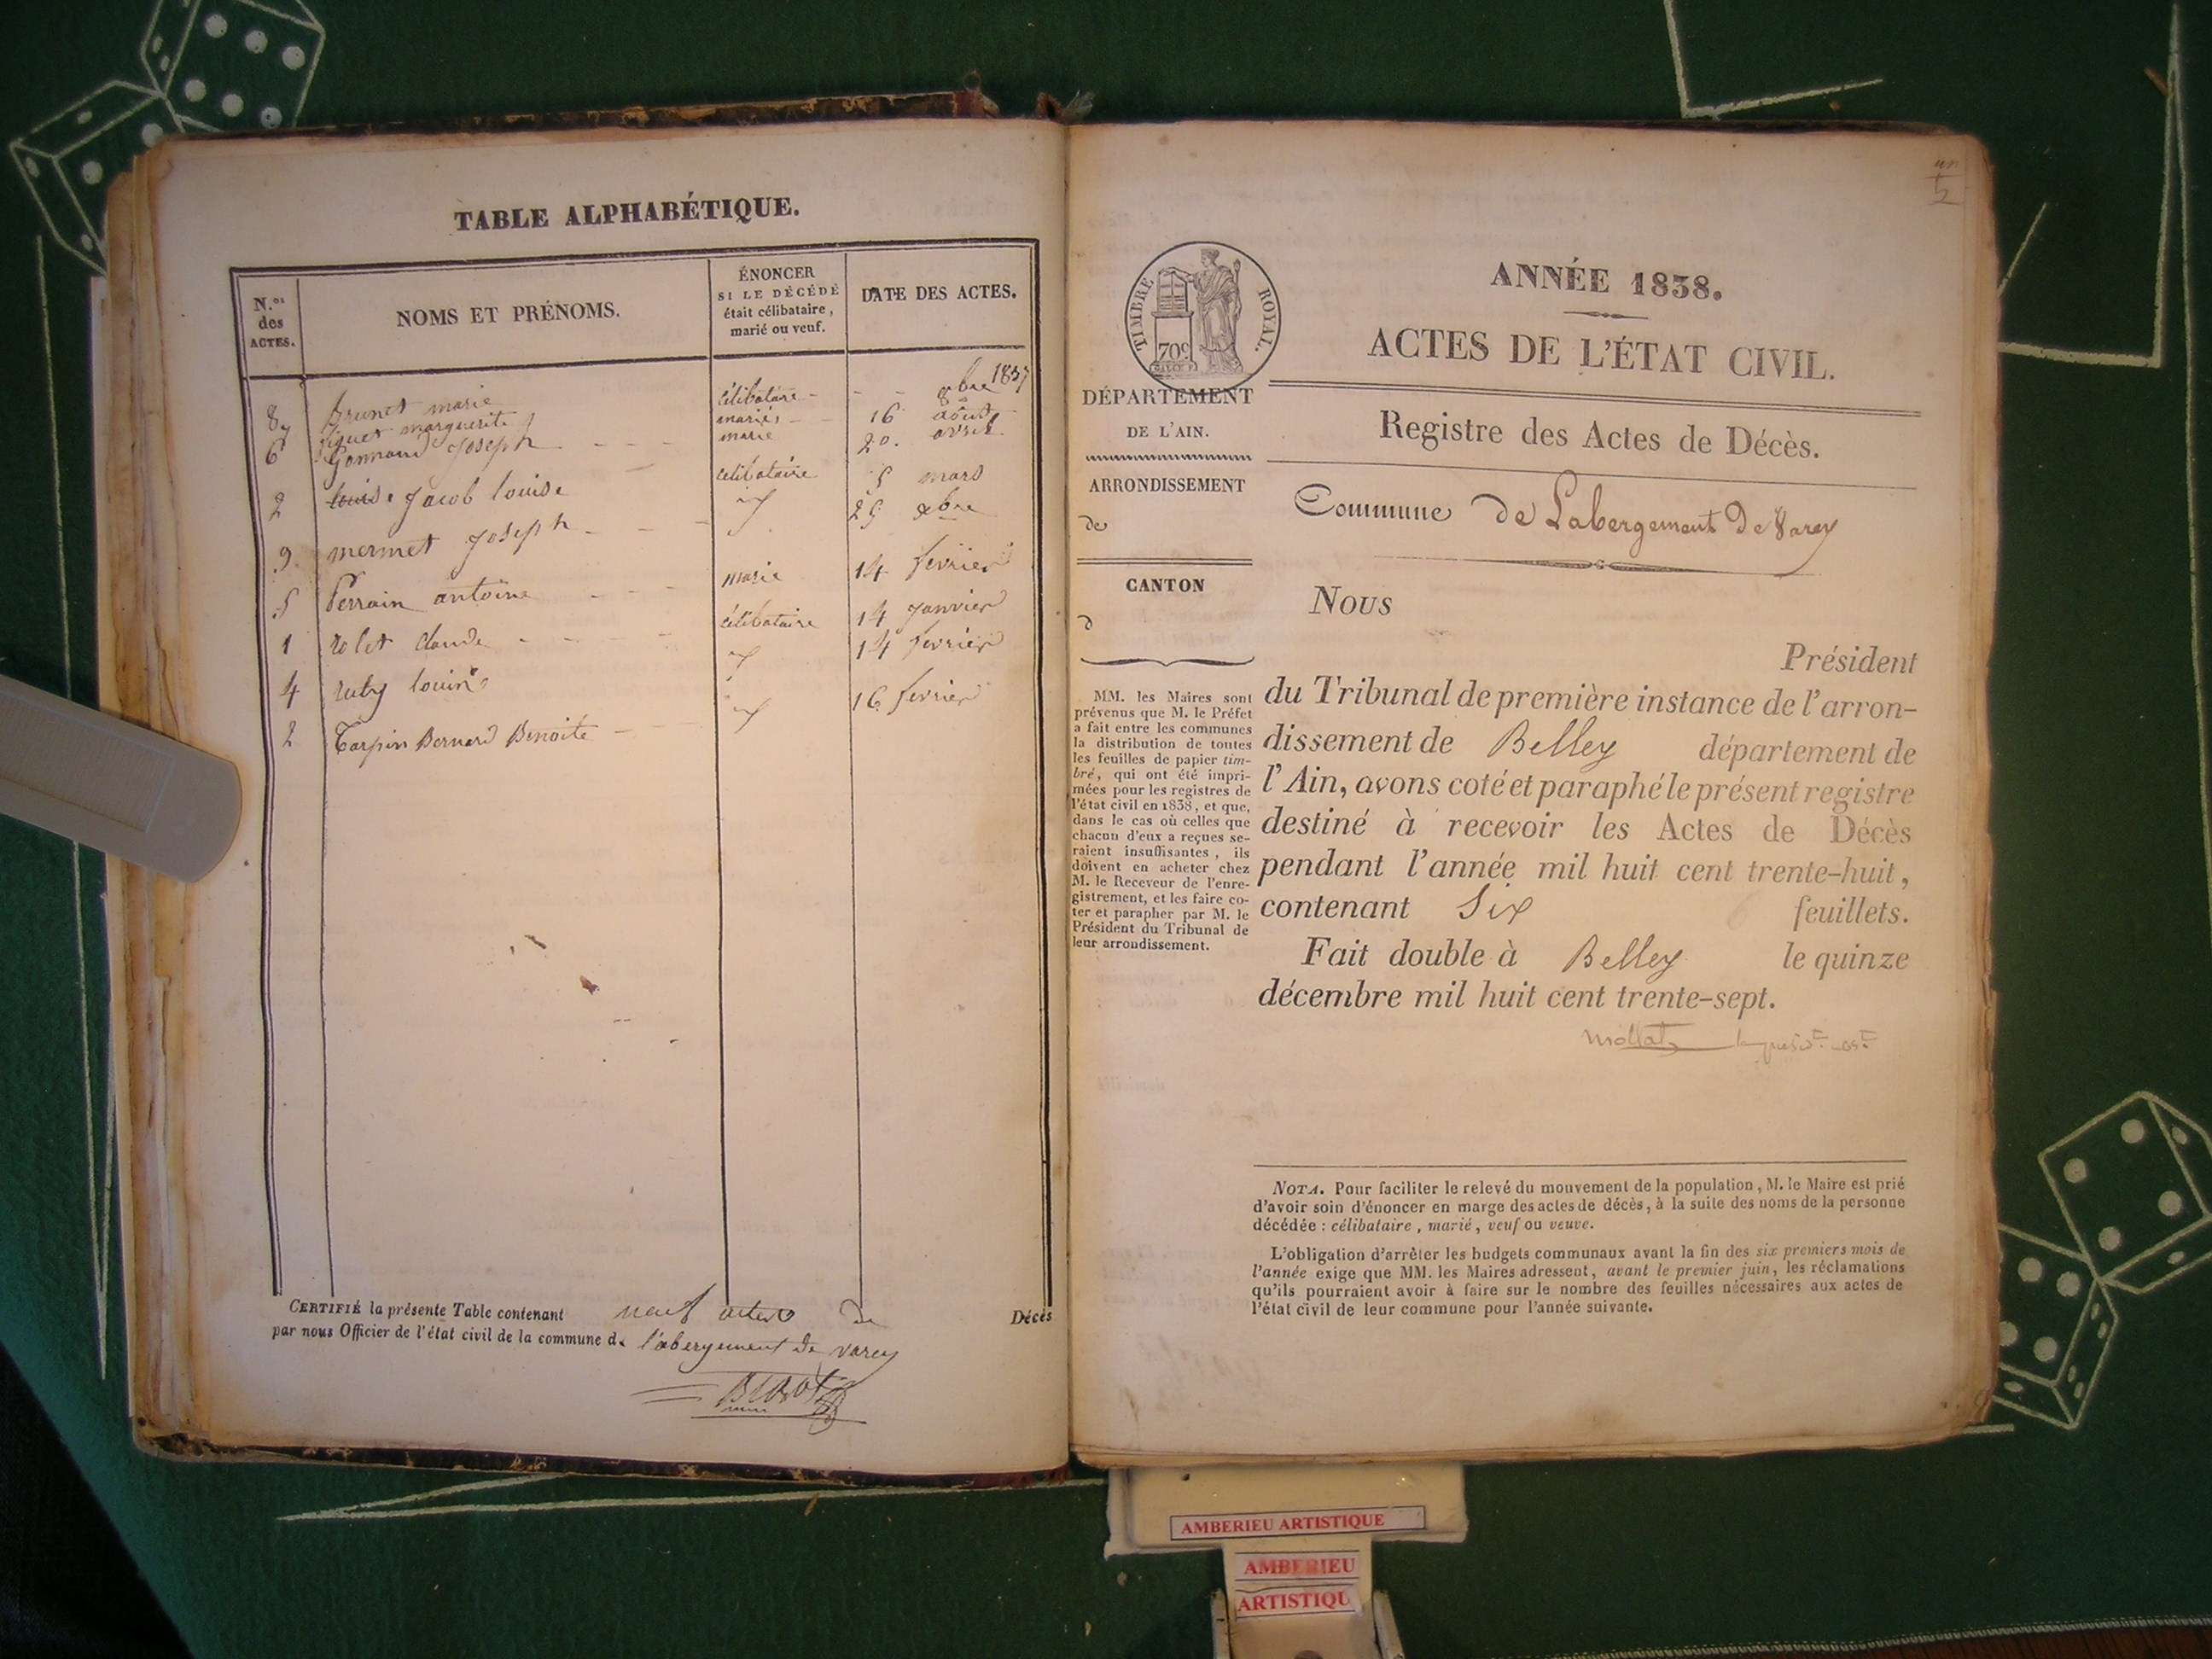 TABLE ALPHABÉTIQUE.
N.os des ACTES.
NOMS ET PRÉNOMS.
ÉNONCER SI LE DÉCÉDÉ était célibataire, marié ou veuf.
DATE DES ACTES.
8 brunet marie célibataire 8bre 1837
7 figuet marguerite mariée 16 août
6 Gonnand Joseph marié 20. avril
2 louise Jacob louise célibataire 5 mars
9. mermet Joseph 25 xbre
5 Perrain antoine marié 14 février
1 rolet claude célibataire 14 Janvier
4 ruby 14 fevrier
2 Tarpin Bernard Benoite 16 fevrier
CERTIFIÉ la présente Table contenant neuf actes de Décès
par nous Officier de l'état civil de la commune de l'abergement de varey
un
ANNÉE 1838.
TIMBRE ROYAL.
70c
ACTES DE L'ÉTAT CIVIL.
DÉPARTEMENT
DE L'AIN.
Registre des Actes de Décès.
ARRONDISSEMENT
de
Commune de Labergement De Varey
CANTON
d
NOUS
Président
du Tribunal de première instance de l'arron-
dissement de Belley département de
l'Ain, avons coté et paraphé le présent registre
destiné à recevoir les Actes de Décès
pendant l'année mil huit cent trente-huit,
contenant Six feuillets.
Fait double à Belley le quinze
décembre mil huit cent trente-sept.
MM. les Maires sont
prévenus que M. le Préfet
a fait entre les communes
la distribution de toutes
les feuilles de papier tim-
bré, qui ont été impri-
mées pour les registres de
l'état civil en 1838, et que,
dans le cas où celles que
chacun d'eux a reçues se-
raient insuffisantes, ils
doivent en acheter chez
M. le Receveur de l'enre-
gistrement, et les faire co-
ter et parapher par M. le
Président du Tribunal de
leur arrondissement.
mollat
NOTA. Pour faciliter le relevé du mouvement de la population, M. le Maire est prié
d'avoir soin d'énoncer en marge des actes de décès, à la suite des noms de la personne
décédée : célibataire, marié, veuf ou veuve.
L'obligation d'arrêter les budgets communaux avant la fin des six premiers mois de
l'année exige que MM. les Maires adressent, avant le premier juin, les réclamations
qu'ils pourraient avoir à faire sur le nombre des feuilles nécessaires aux actes de
l'état civil de leur commune pour l'année suivante.
AMBERIEU ARTISTIQUE
AMBERIEU
ARTISTIQU